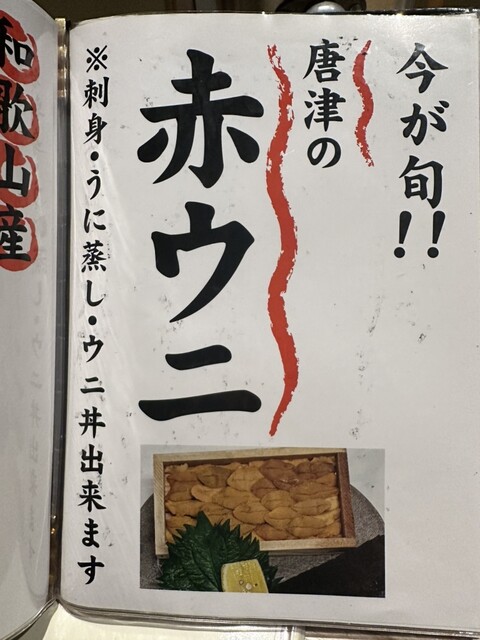 今が旬!!
唐津の
赤ウニ
※刺身・うに蒸し・ウニ丼出来ます
和歌山産